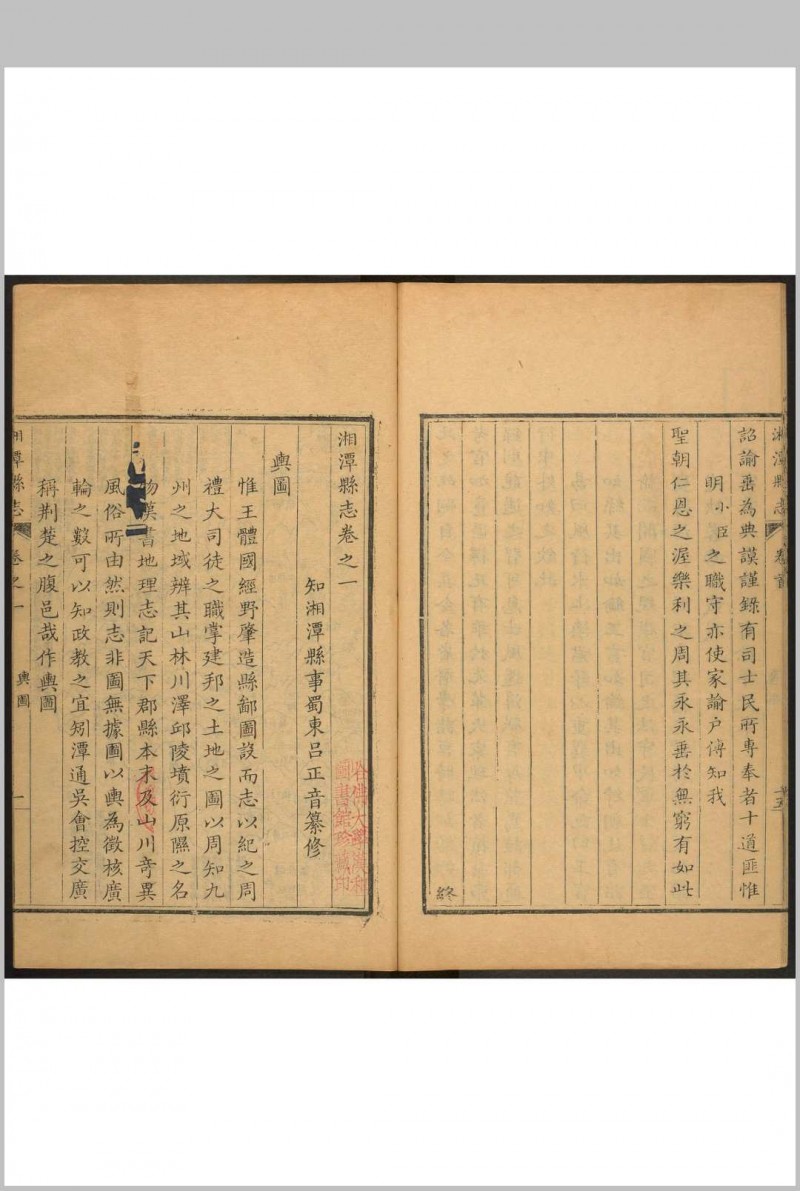 湘潭縣志 卷首 十五
詔諭垂為典謨謹錄有司士民所專奉者十道匪惟
明小臣之職守亦使家諭戶傳知我
聖朝仁恩之渥樂利之周其永永垂於無窮有如此
終
湘潭縣志卷之一
知湘潭縣事蜀東呂正音纂修
輿圖
惟王體國經野肇造縣鄙圖設而志以紀之周
禮大司徒之職掌建邦之土地之圖以周知九
州之地域辨其山林川澤邱陵墳衍原隰之名
物漢書地理志記天下郡縣本末及山川奇異
風俗所由然則志非圖無據圖以輿為徵核廣
輪之數可以知政教之宜矧潭通吳會控交廣
稱荆楚之腹邑哉作輿圖
湘潭縣志 卷之一 輿圖 一
哈佛大學漢和
圖書館珍藏印